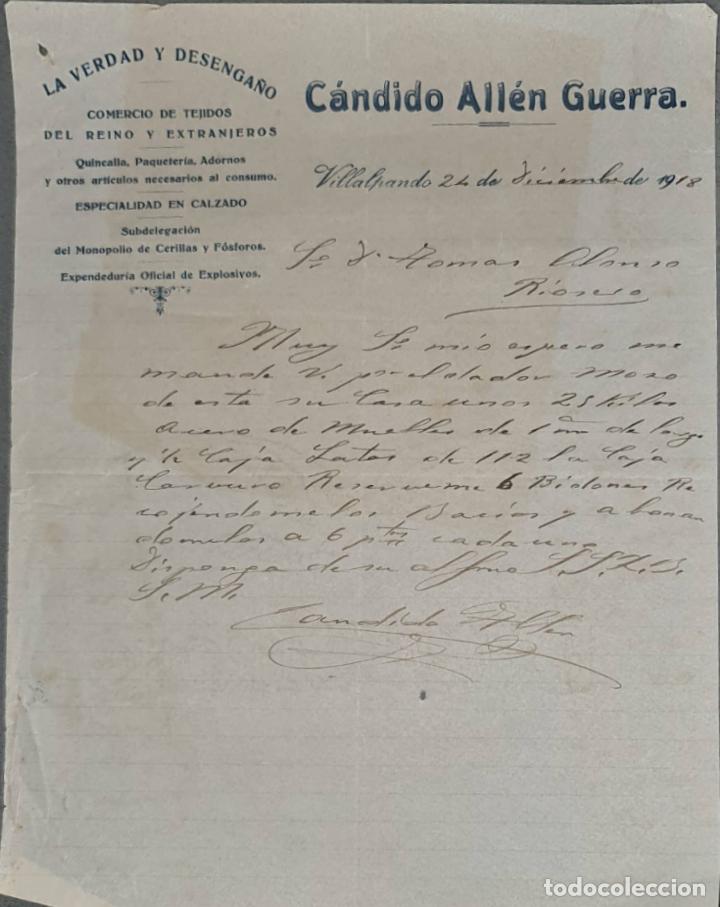 LA VERDAD Y DESENGAÑO
COMERCIO DE TEJIDOS
DEL REINO Y EXTRANJEROS
Quincalla, Paquetería, Adornos
y otros artículos necesarios al consumo.
ESPECIALIDAD EN CALZADO
Subdelegación
del Monopolio de Cerillas y Fósforos.
Expendeduría Oficial de Explosivos.
Cándido Allén Guerra.
Villalpando 24 de Diciembre de 1918
Sr. Dn Tomas Alonso
Rioseco
Muy Sr mio espero me
mande V. por el dador Mozo
de esta su Casa unos 25 Kilos
Acero de Muelles de 1 de largo
y Caja Latas de 112 la Caja
Carburo Reserveme 6 Bidones Re
cojendomelos Bacios y abonan
domelos a 6 ptas cada uno
Disponga de su affmo S.S.
S.M.
Candido Allen
todocoleccion.net